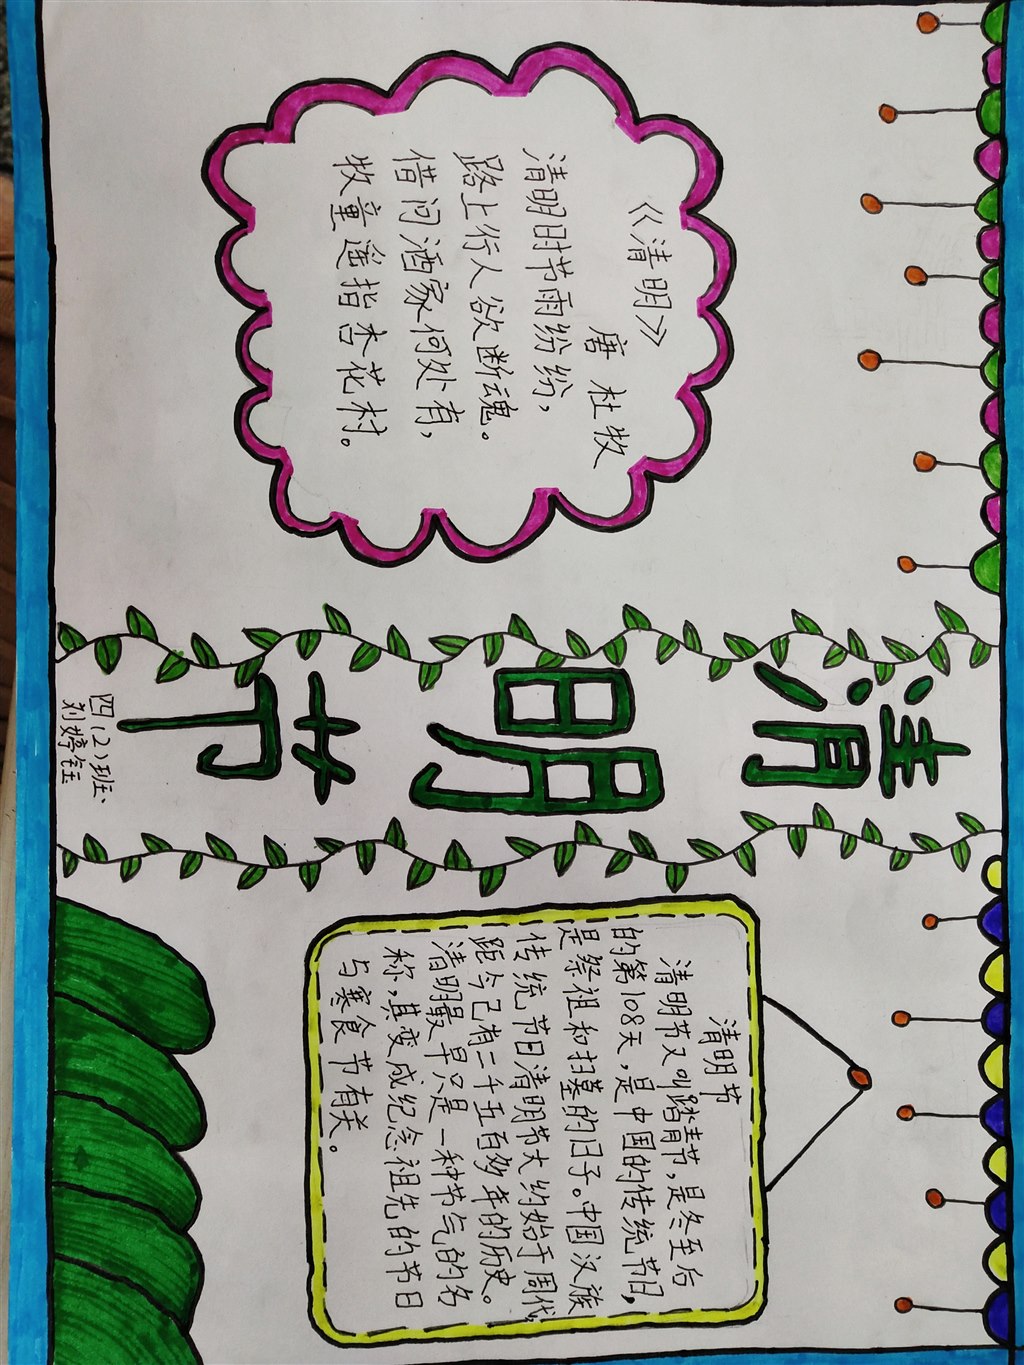 《清明》
唐 杜牧
清明时节雨纷纷，
路上行人欲断魂。
借问酒家何处有，
牧童遥指杏花村。
清明节
四(2)班、
刘婷钰
清明节
清明节又叫踏青节，是冬至后
的第108天，是中国的传统节日，
是祭祖和扫墓的日子。中国汉族
传统节日清明节大约始于周代，
距今已有二千五百多年的历史。
清明最早只是一种节气的名
称，其变成纪念祖先的节日
与寒食节有关。